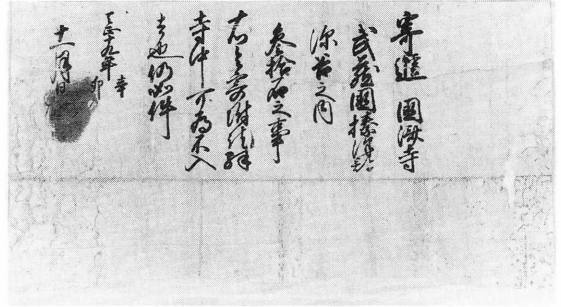 寄進 國濟寺
武蔵國榛澤郡
深谷之内
参拾石之事
右令寄附訖殊
寺中可為不入
者也仍如件
天正十九年辛卯
十一月日